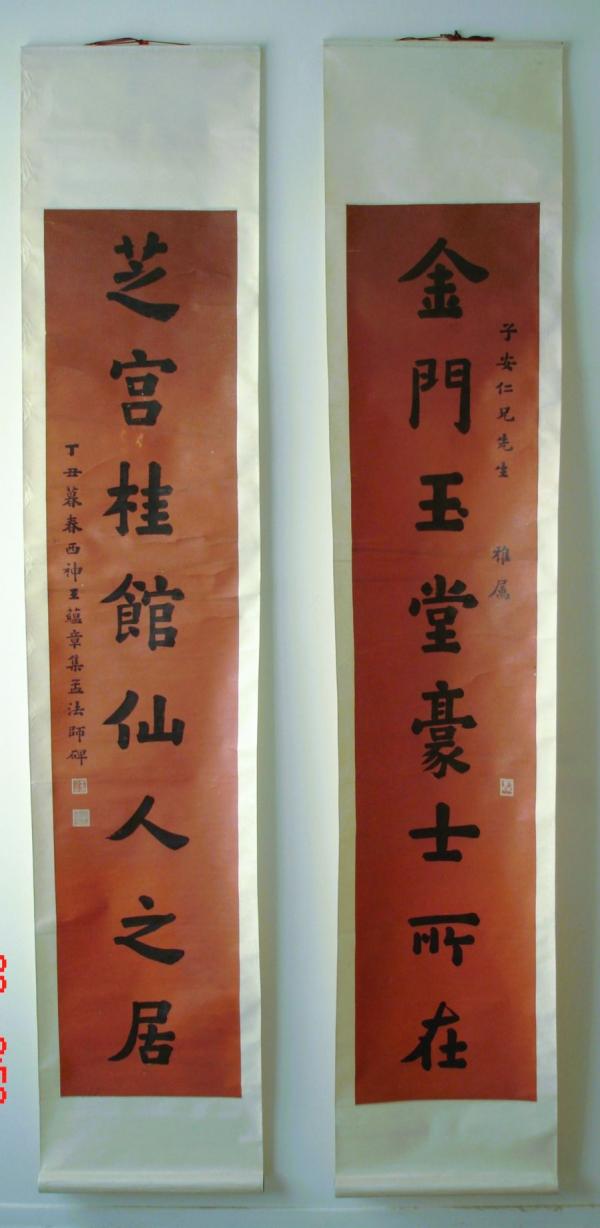 金門玉堂豪士所在
子安仁兄先生 雅属
芝宮桂館仙人之居
丁丑暮春西神王蘊章集孟法師碑